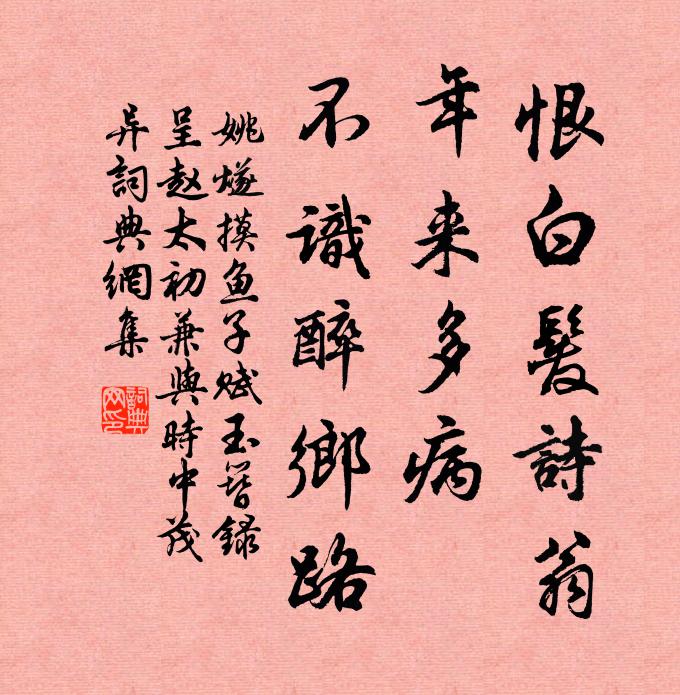 恨白髮詩翁
年来多病
不識醉鄉路
姚燧摸鱼子赋玉簪録
呈赵太初兼與時中茂
异詞典網集
詞典网印